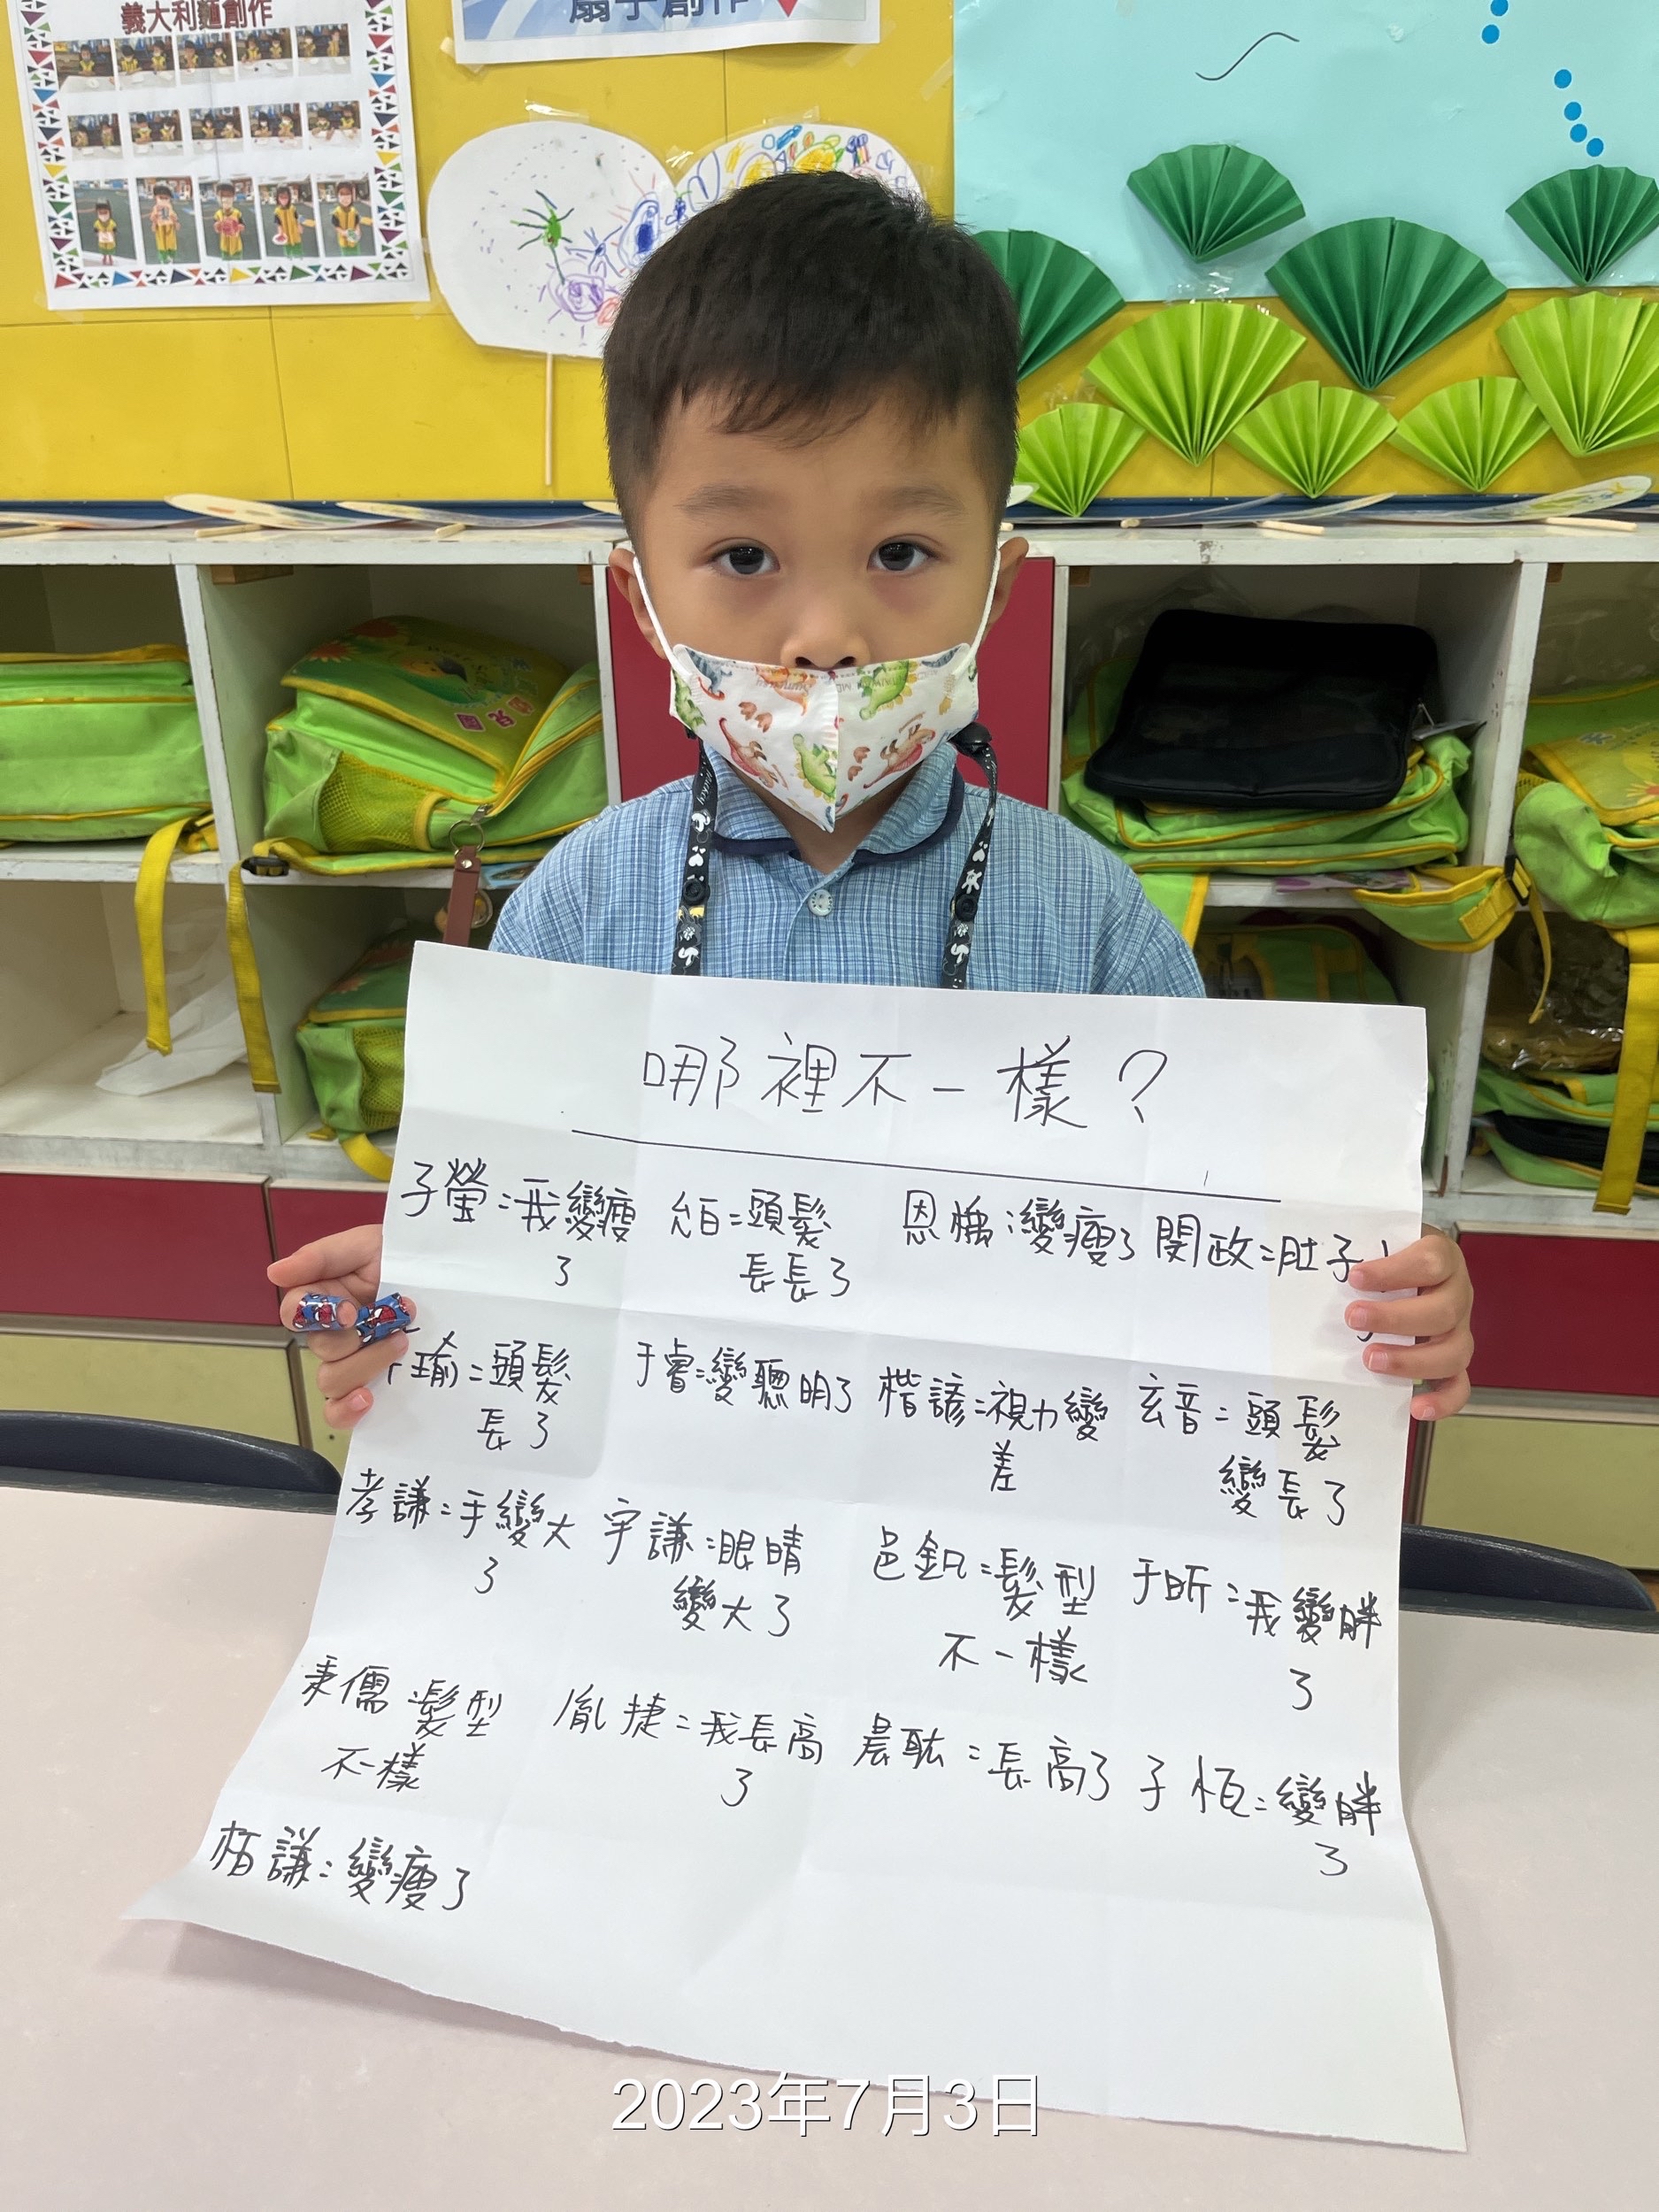 義大利麵創作
扇子創作
幼兒園
哪裡不一樣?
子螢:我變瘦了
允百:頭髮長長了
恩 :變瘦了
閔政:肚子
瑜:頭髮長了
于睿:變聰明了
楷諺:視力變差
玄音:頭髮變長了
孝謙:手變大了
宇謙:眼睛變大了
邑釩:髮型不一樣
于昕:我變胖了
秉儒:髮型不一樣
胤捷:我長高了
晨耘:長高了
子恆:變胖了
栢謙:變瘦了
2023年7月3日